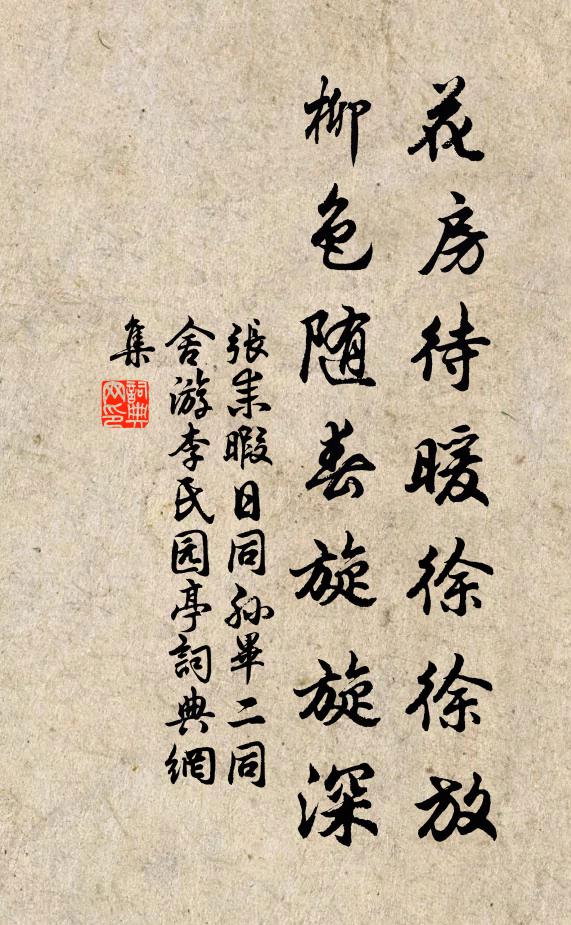 花房待暖徐徐放
柳色随春旋旋深
張耒暇日同孙畢二同
舍游李氏园亭詞典網
集
詞典
网印